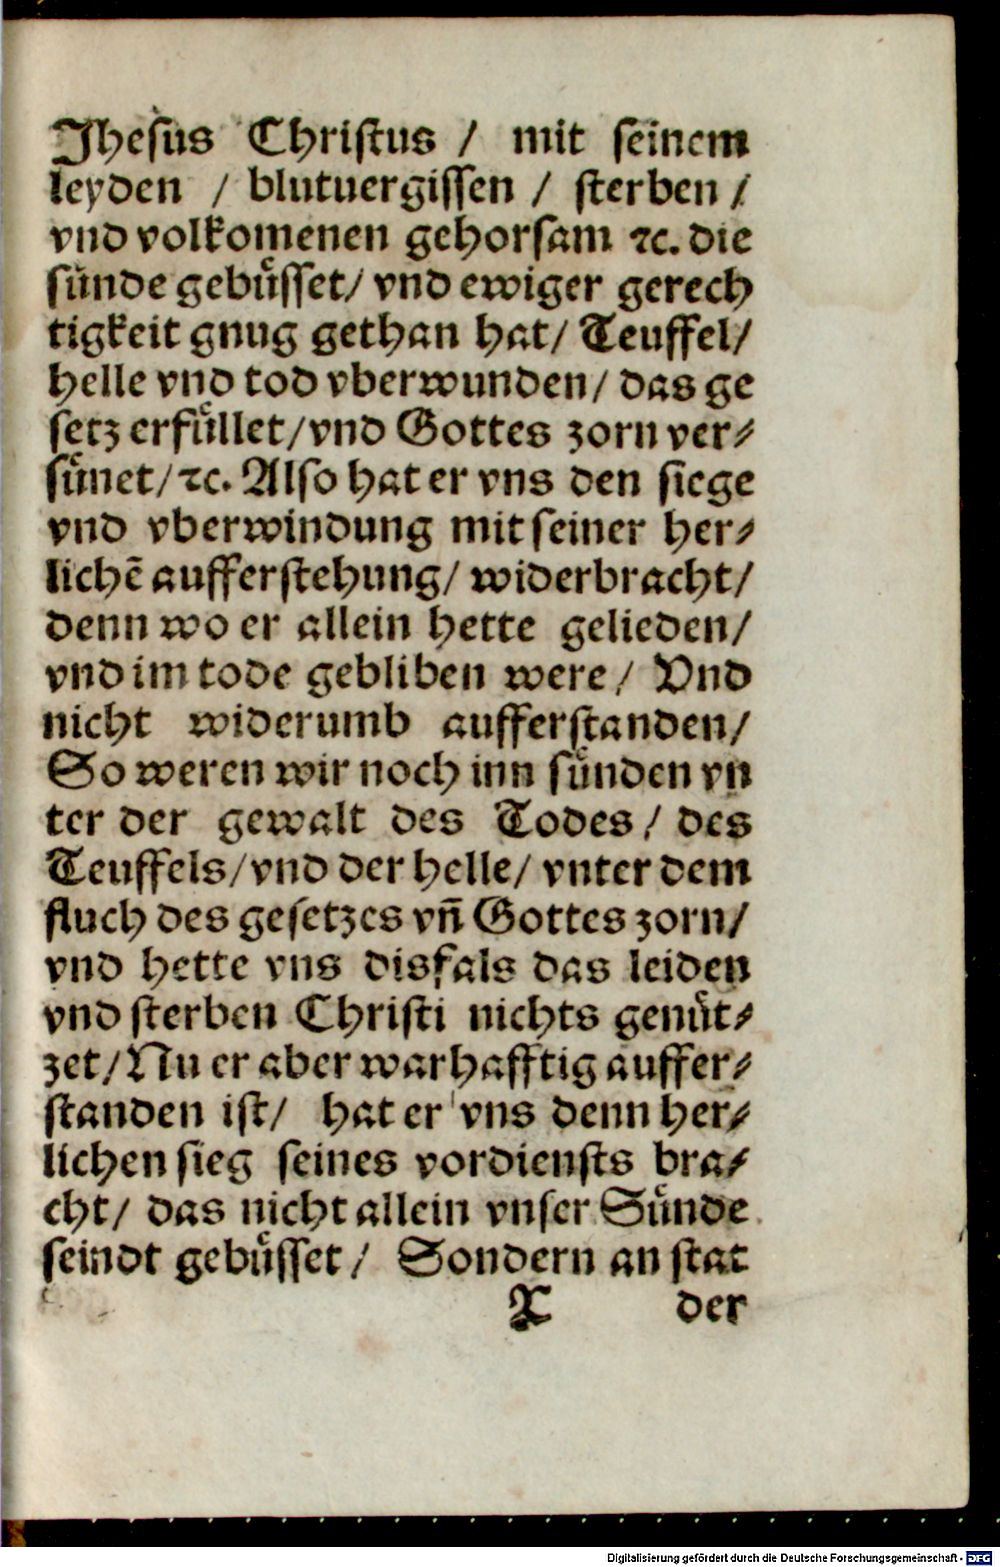 Jheſus Christus / mit ſeinem
leyden / blutuergiſſen / ſterben /
vnd volkomenen gehorſam ꝛc. die
ſuͤnde gebuͤſſet/ vnd ewiger gerech
tigkeit gnug gethan hat/ Teuffel/
helle vnd tod vberwunden/ das ge
ſetz erfuͤllet/vnd Gottes zorn ver⸗
ſuͤnet/ꝛc. Alſo hat er vns den ſiege
vnd vberwindung mit ſeiner her⸗
lichẽ aufferſtehung/ widerbracht/
denn wo er allein hette gelieden/
vnd im tode gebliben were/ Vnd
nicht widerumb aufferſtanden/
So weren wir noch inn ſuͤnden vn
ter der gewalt des Todes/ des
Teuffels/vnd der helle/ vnter dem
fluch des geſetzes vñ Gottes zorn/
vnd hette vns disfals das leiden
vnd ſterben Chriſti nichts genuͤt⸗
zet/Nu er aber warhafftig auffer⸗
ſtanden iſt/ hat er vns denn her⸗
lichen ſieg ſeines vordienſts bra⸗
cht/ das nicht allein vnſer Suͤnde
ſeindt gebuͤſſet/ Sondern an ſtat
X der
Digitalisierung gefördert durch die Deutsche Forschungsgemeinschaft - DFG